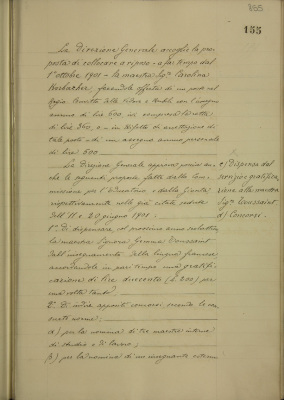 155
155
La Direzione Generale accoglie la pro-
posta di collocare a riposo - a far tempo dal
1° ottobre 1901 - la maestra Sig.ra Carolina
facendole offerta di un posto nel
Regio delle e coll'assegno
annuo di lire 600, ivi compresa
di lire 360, o - in difetto di accettazione di
tale posto - di un assegno annuo personale
di lire 600
La Direzione Generale approva poscia an-
che le seguenti proposte fatte dalla Com-
missione per l'Educatorio e dalla Giunta
rispettivamente nelle più citate sedute
dell'11 e 20 giugno 1901:
1° Di dispensare, col prossimo anno scolastico
la maestra Signora Toussaint
dall'insegnamento della lingua francese
accordandole in pari tempo una gratifi-
cazione di lire duecento (£ 200) per
una volta tanto
2° Di indire appositi concorsi secondo le
norme:
a) per la nomina di tre maestre interne
di studio e di lavoro;
b) per la nomina di un insegnante esterno
e) Dispensa dal
servizio e gratifica-
zione alla maestra
Sig.ra Toussaint
d) Concorsi